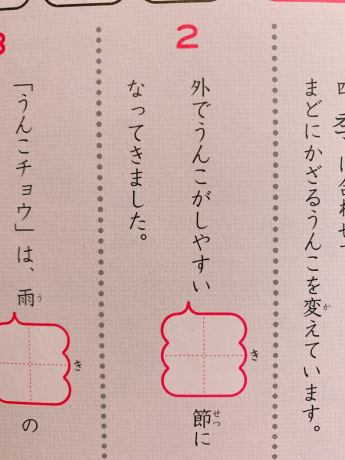 まどにかざるうんこを変えています。
か
2
外でうんこがしやすい
き
節に
せつ
なってきました。
「うんこチョウ」は、雨
う
き
の